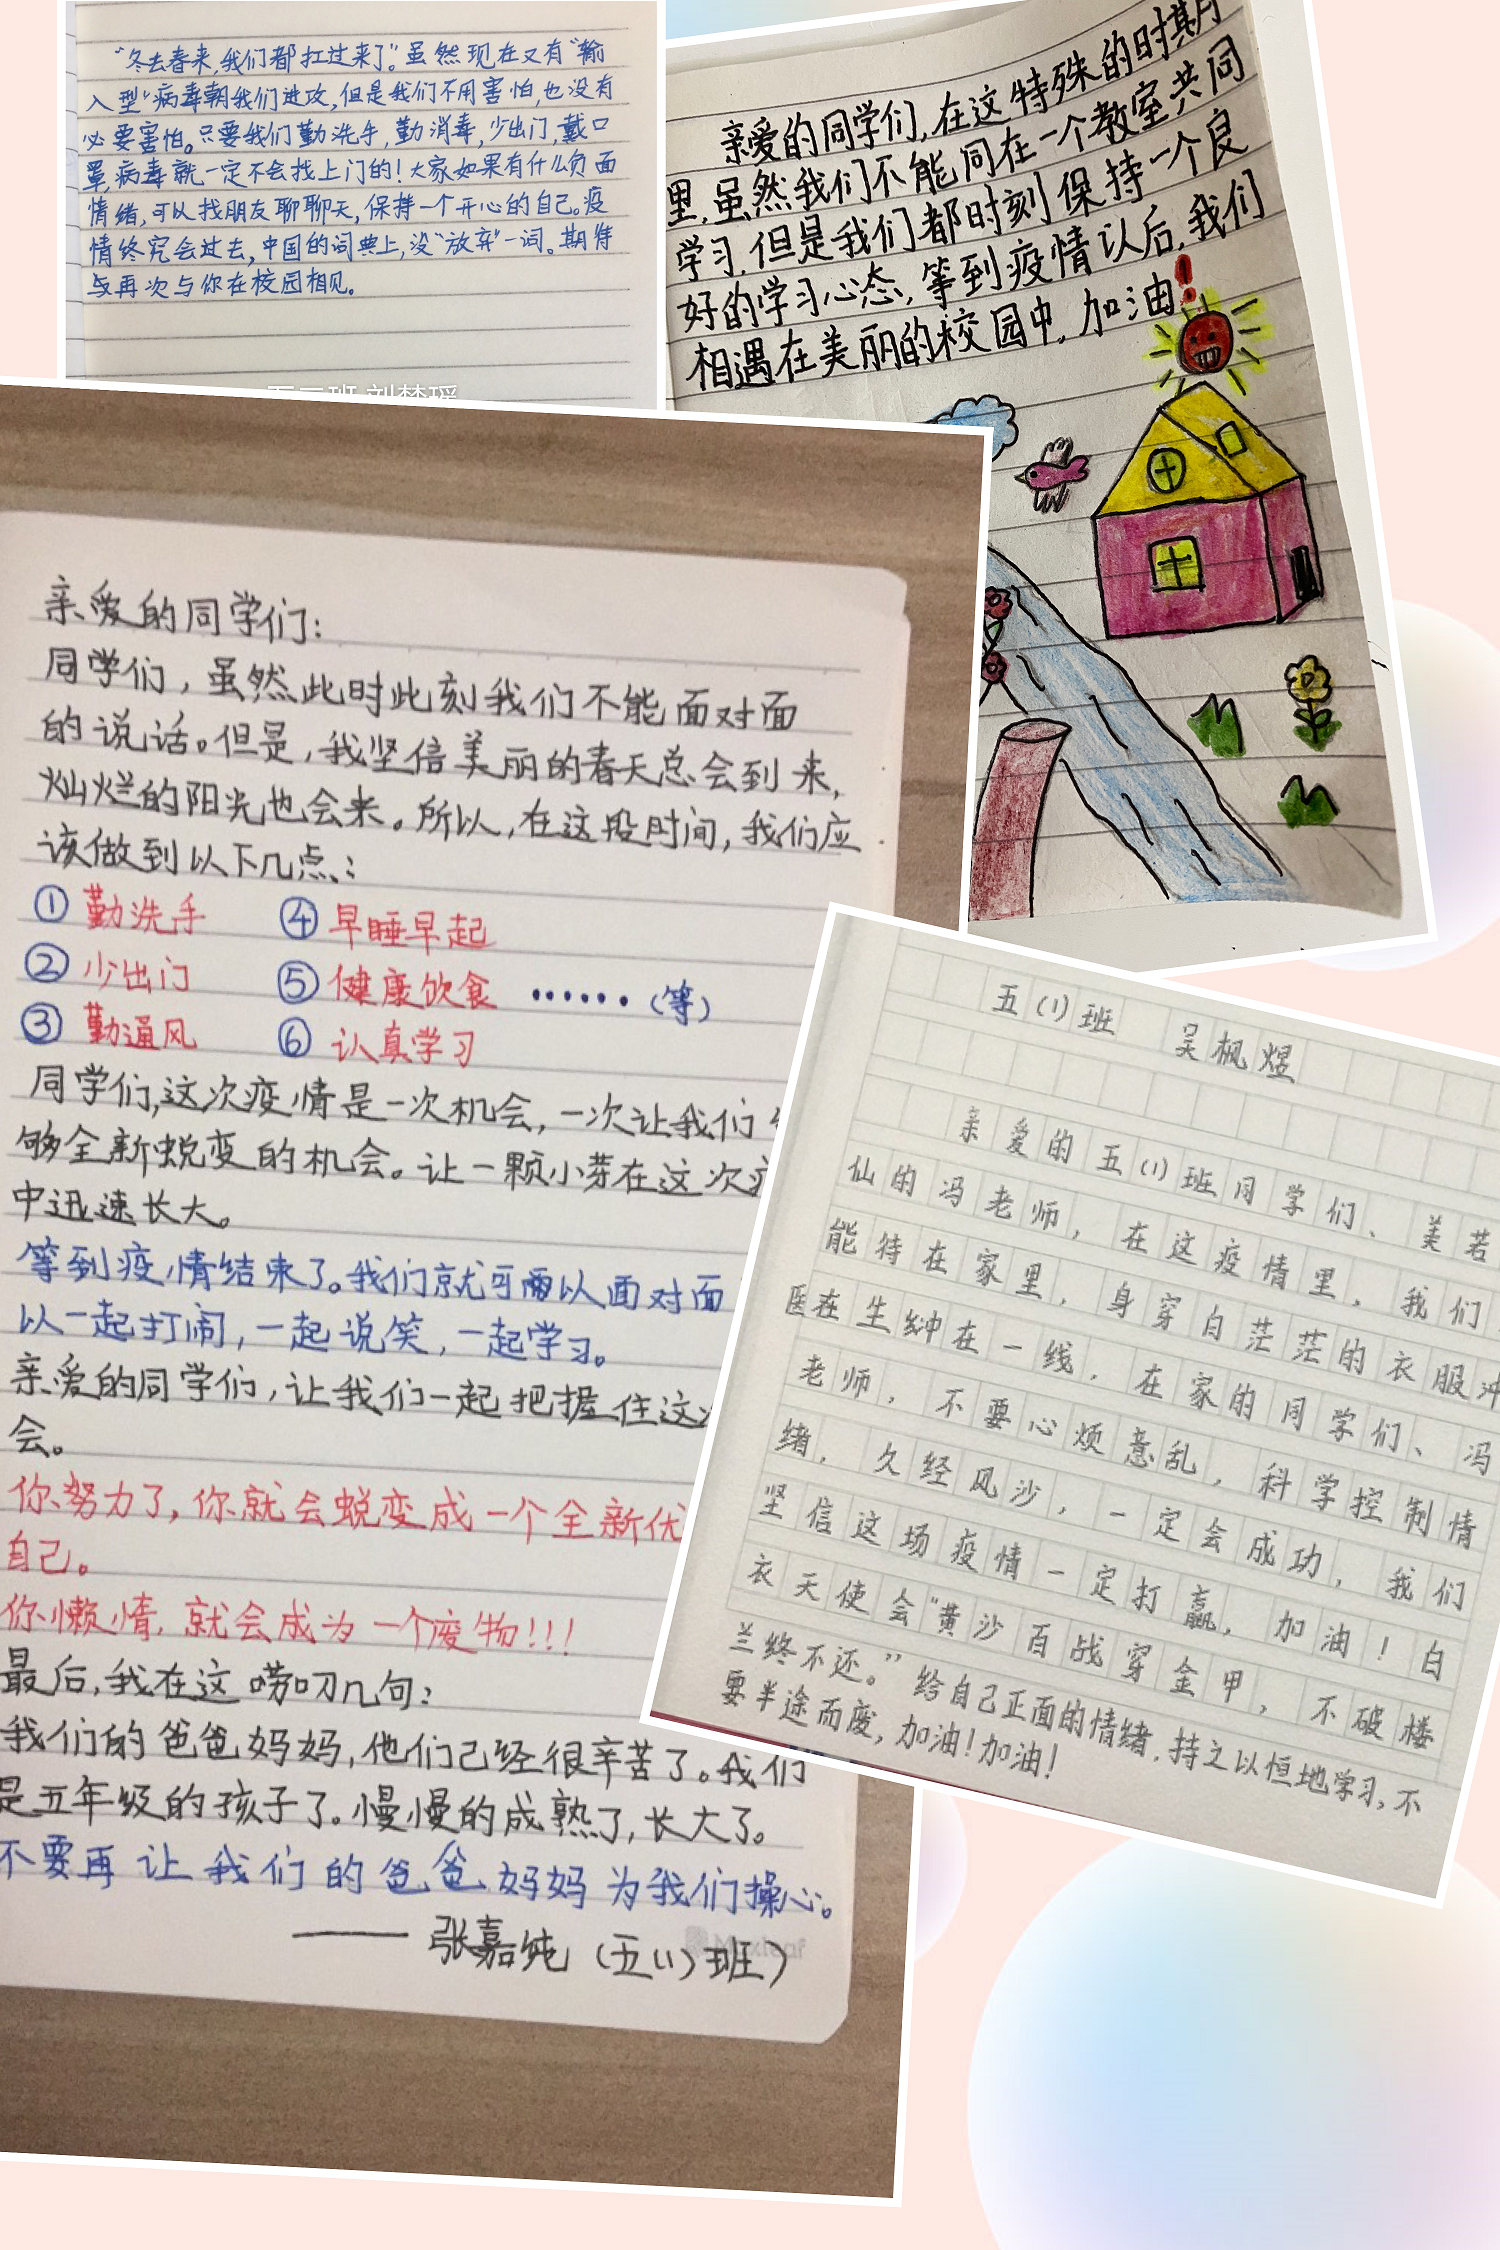 “冬去春来,我们都扛过来了”。虽然现在又有“输
入型”病毒朝我们进攻,但是我们不用害怕,也没有
必要害怕。只要我们勤洗手,勤消毒,少出门,戴口
罩,病毒就一定不会找上门的!大家如果有什么负面
情绪,可以找朋友聊聊天,保持一个开心的自己。疫
情终究会过去,中国的词典上,没“放弃”一词。期待
与再次与你在校园相见。
亲爱的同学们,在这特殊的时期
里,虽然我们不能同在一个教室共同
学习,但是我们都时刻保持一个良
好的学习心态,等到疫情以后,我们
相遇在美丽的校园中,加油!
亲爱的同学们:
同学们,虽然此时此刻我们不能面对面
的说话。但是,我坚信美丽的春天总会到来,
灿烂的阳光也会来。所以,在这段时间,我们应
该做到以下几点:
① 勤洗手 ④ 早睡早起
② 少出门 ⑤ 健康饮食 ……(等)
③ 勤通风 ⑥ 认真学习
同学们,这次疫情是一次机会,一次让我们
够全新蜕变的机会。让一颗小芽在这次
中迅速长大。
等到疫情结来了。我们就可以面对面
以一起打闹,一起说笑,一起学习。
亲爱的同学们,让我们一起把握住这
会。
你努力了,你就会蜕变成一个全新优
自己。
你懒惰,就会成为一个废物!!!
最后,我在这唠叨几句:
我们的爸爸妈妈,他们已经很辛苦了。我们
是五年级的孩子了。慢慢的成熟了,长大了。
不要再让我们的爸爸妈妈为我们操心。
—— 张嘉纯(五(1)班)
五(1)班 吴枫煜
亲爱的五(1)班同学们、美若
仙的冯老师,在这疫情里,我们
能待在家里,身穿白茫茫的衣服冲
医在生在一线,在家的同学们、冯
老师,不要心烦意乱,科学控制情
绪,久经风沙,一定会成功,我们
坚信这场疫情一定打赢,加油!白
衣天使会“黄沙百战穿金甲,不破楼
兰终不还。”给自己正面的情绪,持之以恒地学习,不
要半途而废,加油!加油!